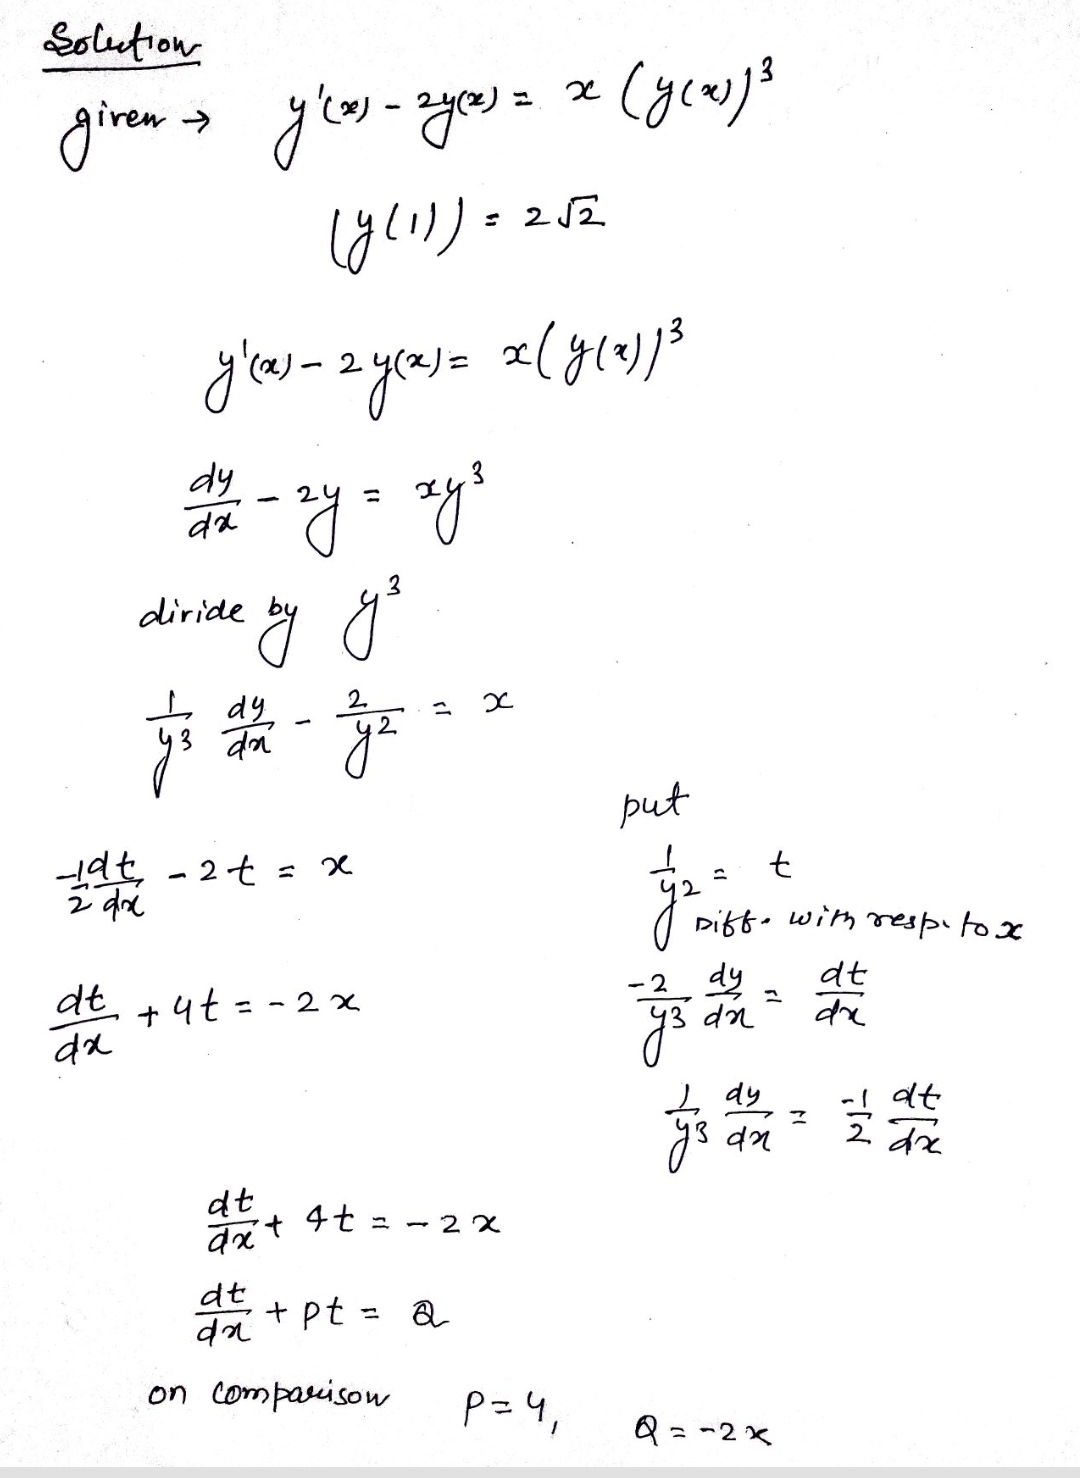 Solution
given → y'(x) - 2y(x) = x (y(x))³
(y(1)) = 2√2
y'(x) - 2y(x) = x(y(x))³
dy/dx - 2y = xy³
divide by y³
1/y³ dy/dx - 2/y² = x
put
-1/2 dt/dx - 2t = x
1/y² = t
Diff. with resp. to x
dt/dx + 4t = -2x
-2/y³ dy/dx = dt/dx
1/y³ dy/dx = -1/2 dt/dx
dt/dx + 4t = -2x
dt/dx + pt = Q
on comparison P=4, Q=-2x